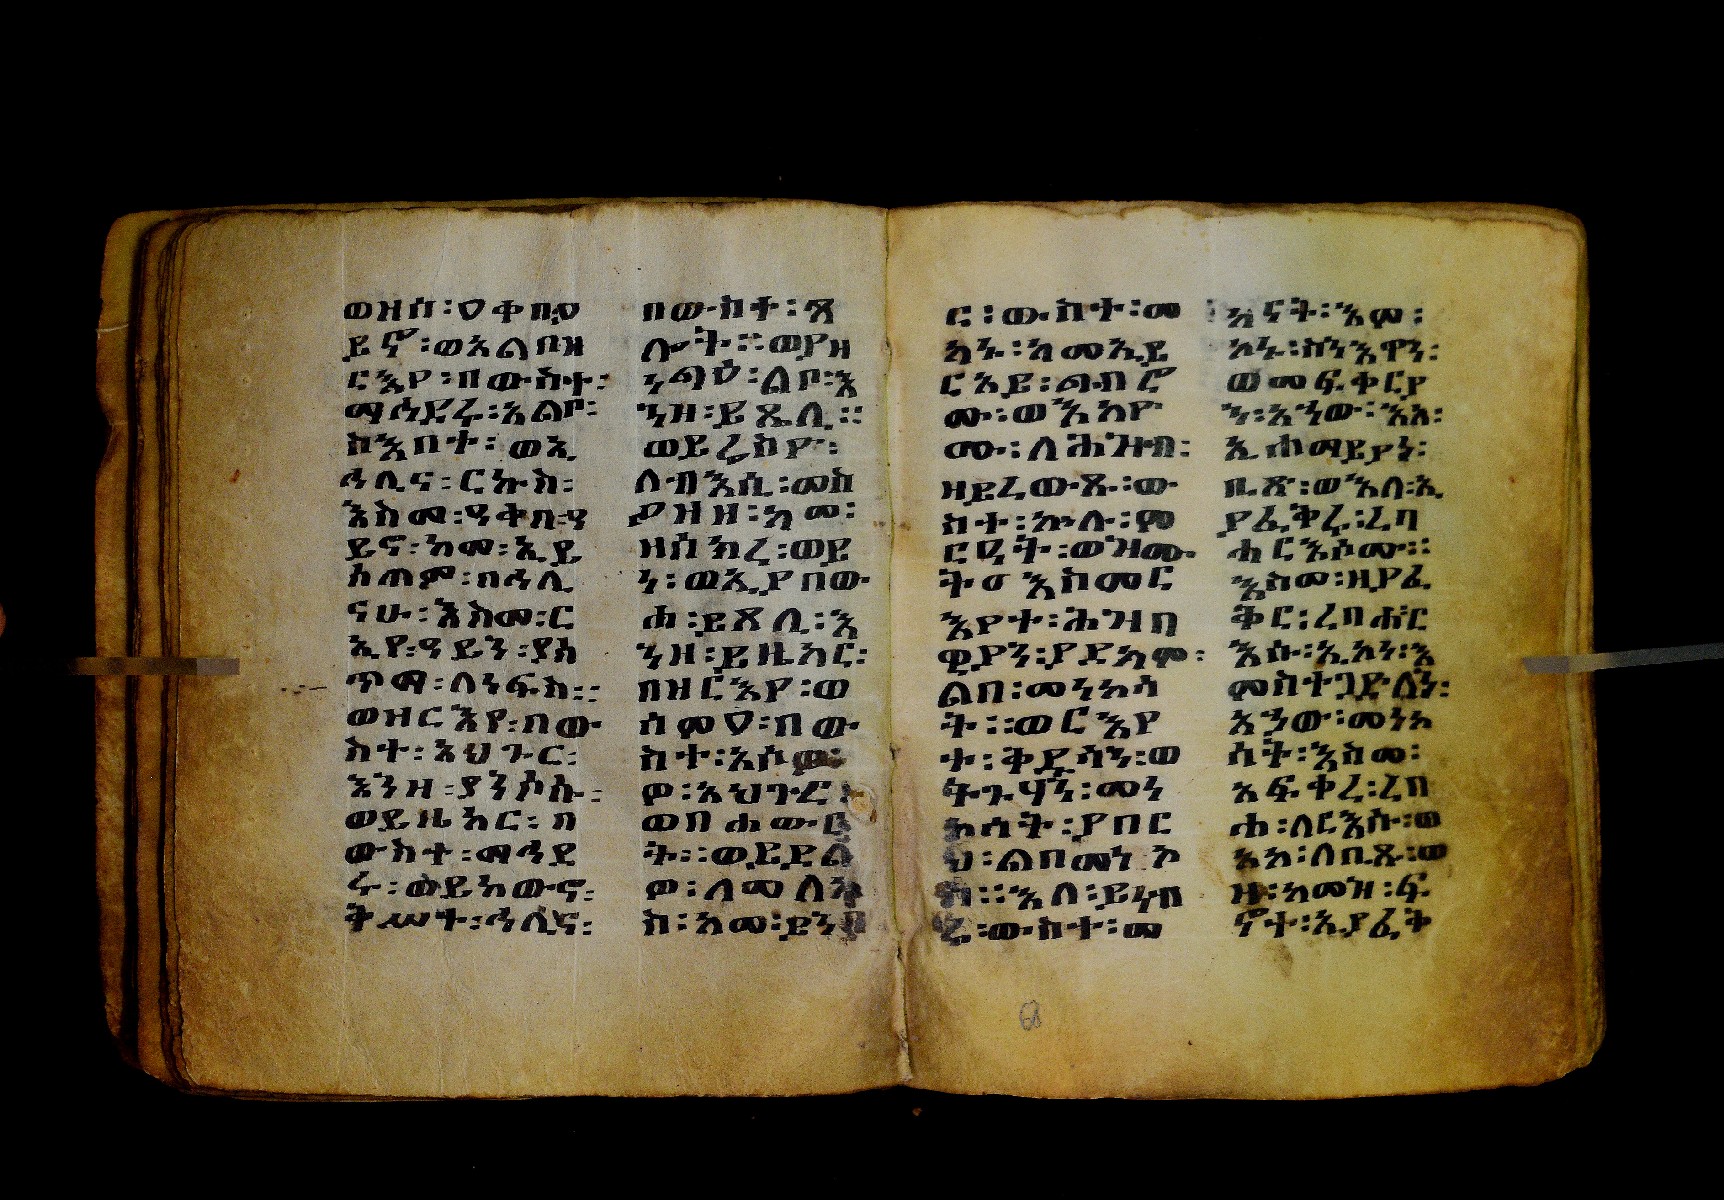 ወዝሰ፡ዐቀበ፡ዐ
ይኖ፡ወአልበዘ
ርእዮ፡በውስተ፡
ማሕደሩ፡አልቦ፡
ክእበተ፡ወኢ
ሓሊና፡ርኩስ፡
እስመ፡ዓቅበ፡ዓ
ይኖ፡ከመ፡ኢይ
ስጠም፡በሓሊ
ናሁ፡እስመ፡ር
ኢየ፡ዓይን፡ያስ
ጥማ፡ለነፍስ፡፡
ወዝርእየ፡በው
ስተ፡አህጉር፡
እንዘ፡ያንሶሱ፡
ወይዜከር፡በ
ውስተ፡ማኅደ
ሩ፡ወይከውኖ፡
ትሥተ፡ሓሊና፡
በውስተ፡ጸ
ሎት፡፡ወያዘ
ነጫዕ፡ልቦ፡እ
ንዘ፡ይጼሊ፡፡
ወይሬስዮ፡
ለብእሲ፡መስ
ያዝዘ፡ከመ፡
ዘሰክረ፡ወይ
ነ፡ወኢያበው
ሐ፡ይጸሊ፡እ
ንዘ፡ይዜከር፡
በዝርእዮ፡ወ
ሰምዐ፡በው
ስተ፡አሶወ፡
ዖ፡አህጉር፡
ወበሐውር
ት፡፡ወይደል
ዎ፡ለመለኮ
ስ፡ከመ፡ይንበ
ር፡ውስተ፡መ
ካኑ፡ከመኢይ
ርአይ፡ጫብሮ
ሙ፡ወኢአዮ
ሙ፡ለሕዝብ፡
ዘይረውጹ፡ው
ስተ፡ኵሉ፡ም
ርዒት፡ወዝሙ
ት፡፡እስመር
እዮተ፡ሕዝብ
ዊያን፡ያደክም፡
ልበ፡መነኮሳ
ት፡፡ወርእየ
ተ፡ቅዱሳን፡ወ
ትጉሃን፡መነ
ኮሳት፡ያበር
ህ፡ልበመነኮ
ስ፡፡እለ፡ይነብ
ሩ፡ውስተ፡መ
ካናት፡እም፡
ኮኑ፡ከነእዋን፡
ወመፍቀርያ
ን፡እንው፡እለ፡
ኢሐማይያነ፡
ቢጽ፡ወእለ፡ኢ
ያፈቅሩ፡ረባ
ሐርእሶሙ፡፡
እስመ፡ዚያፈ
ቅር፡ረባሐር
እሱ፡ኢኮነ፡እ
ምስተጋድለን፡
እንው፡መነኮ
ሳት፡እስመ፡
አፍቀረ፡ረባ
ሐ፡ለርእሱ፡ወ
አኮ፡ለቢጹ፡ወ
ዝ፡ከመዝ፡ፍ
ኖተ፡ኢያፈቅ